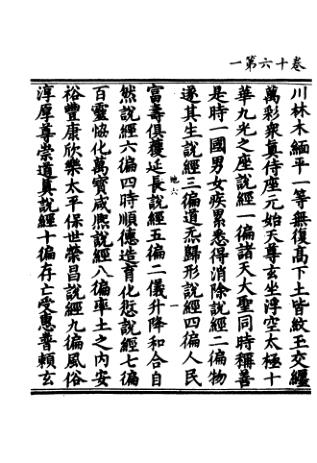 卷十六第一
川林木緬平一等無復高下土皆紋玉交纏
萬彩衆真侍座元始天尊玄坐浮空太極十
華九光之座說經一徧諸天大聖同時稱善
是時一國男女疾累悉得消除說經二徧物
遂其生說經三徧道炁歸形說經四徧人民
地六
一
富壽俱獲延長說經五徧二儀升降和合自
然說經六徧四時順德造育化愆說經七徧
百靈恊化萬寶咸熈說經八徧率土之内安
裕豐康欣樂太平保世榮昌說經九徧風俗
淳厚尊崇道真說經十徧存亡受惠普賴玄